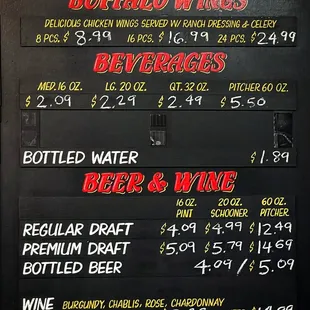 BUFFALO WINGS
DELICIOUS CHICKEN WINGS SERVED W/ RANCH DRESSING & CELERY
8 PCS. $8.99 16 PCS. $16.99 24 PCS. $24.99
BEVERAGES
MED. 16 OZ. LG. 20 OZ. QT. 32 OZ. PITCHER 60 OZ.
$2.09 $2.29 $2.49 $5.50
BOTTLED WATER $1.89
BEER & WINE
16 OZ. 20 OZ. 60 OZ.
PINT SCHOONER PITCHER
REGULAR DRAFT $4.09 $4.99 $12.49
PREMIUM DRAFT $5.09 $5.79 $14.69
BOTTLED BEER 4.09/$5.09
WINE BURGUNDY, CHABLIS, ROSE, CHARDONNAY